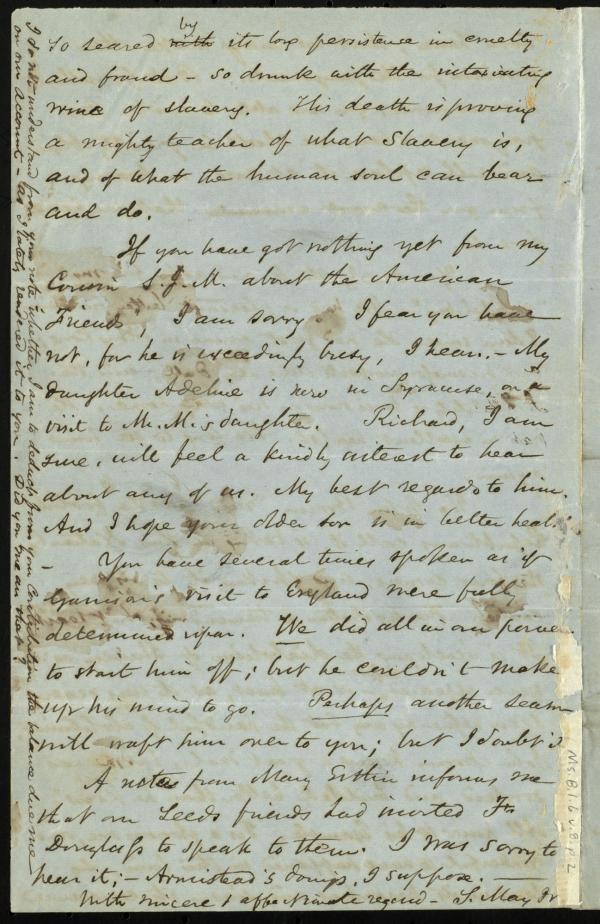 so seared with by its long persistence in cruelty
and fraud - so drunk with the intoxicating
wine of slavery. His death is proving
a mighty teacher of what Slavery is,
and of what the human soul can bear
and do.
If you have got nothing yet from my
Cousin S. J. M. about the American
Friends, I am sorry. I fear you have
not, for he is exceedingly busy, I hear. - My
daughter Adeline is now in Syracuse, on a
visit to Mr. M.'s daughter. Richard, I am
sure, will feel a kindly interest to hear
about any of us. My best regards to him.
And I hope your older son is in better heal
- You have several times spoken as if
Garrison's visit to England were fully
determined upon. We did all in our power
to start him off; but he couldn't make
up his mind to go. Perhaps another season
will waft him over to you; but I doubt it
A note from Mary Estlin informs me
that our Leeds friends had invited Fr
Douglass to speak to them. I was sorry to
hear it; - Armistead's doings, I suppose. -
With sincere & affectionate regard - S. May Jr
I do not understand from your note whether I am to deduct from your contribution the balance due me
on our account - as I lately rendered it to you. Did you mean that?
Ms.B.1.6 v.8 p.2